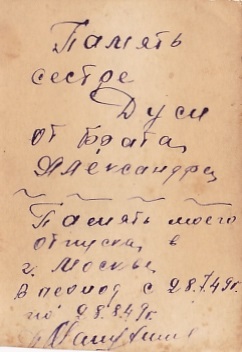 Память
сестре
Дуси
от брата
Александра
Память моего
отпуска в
г. Москвы
в период с 28.7.49г.
по 28.8.49г.